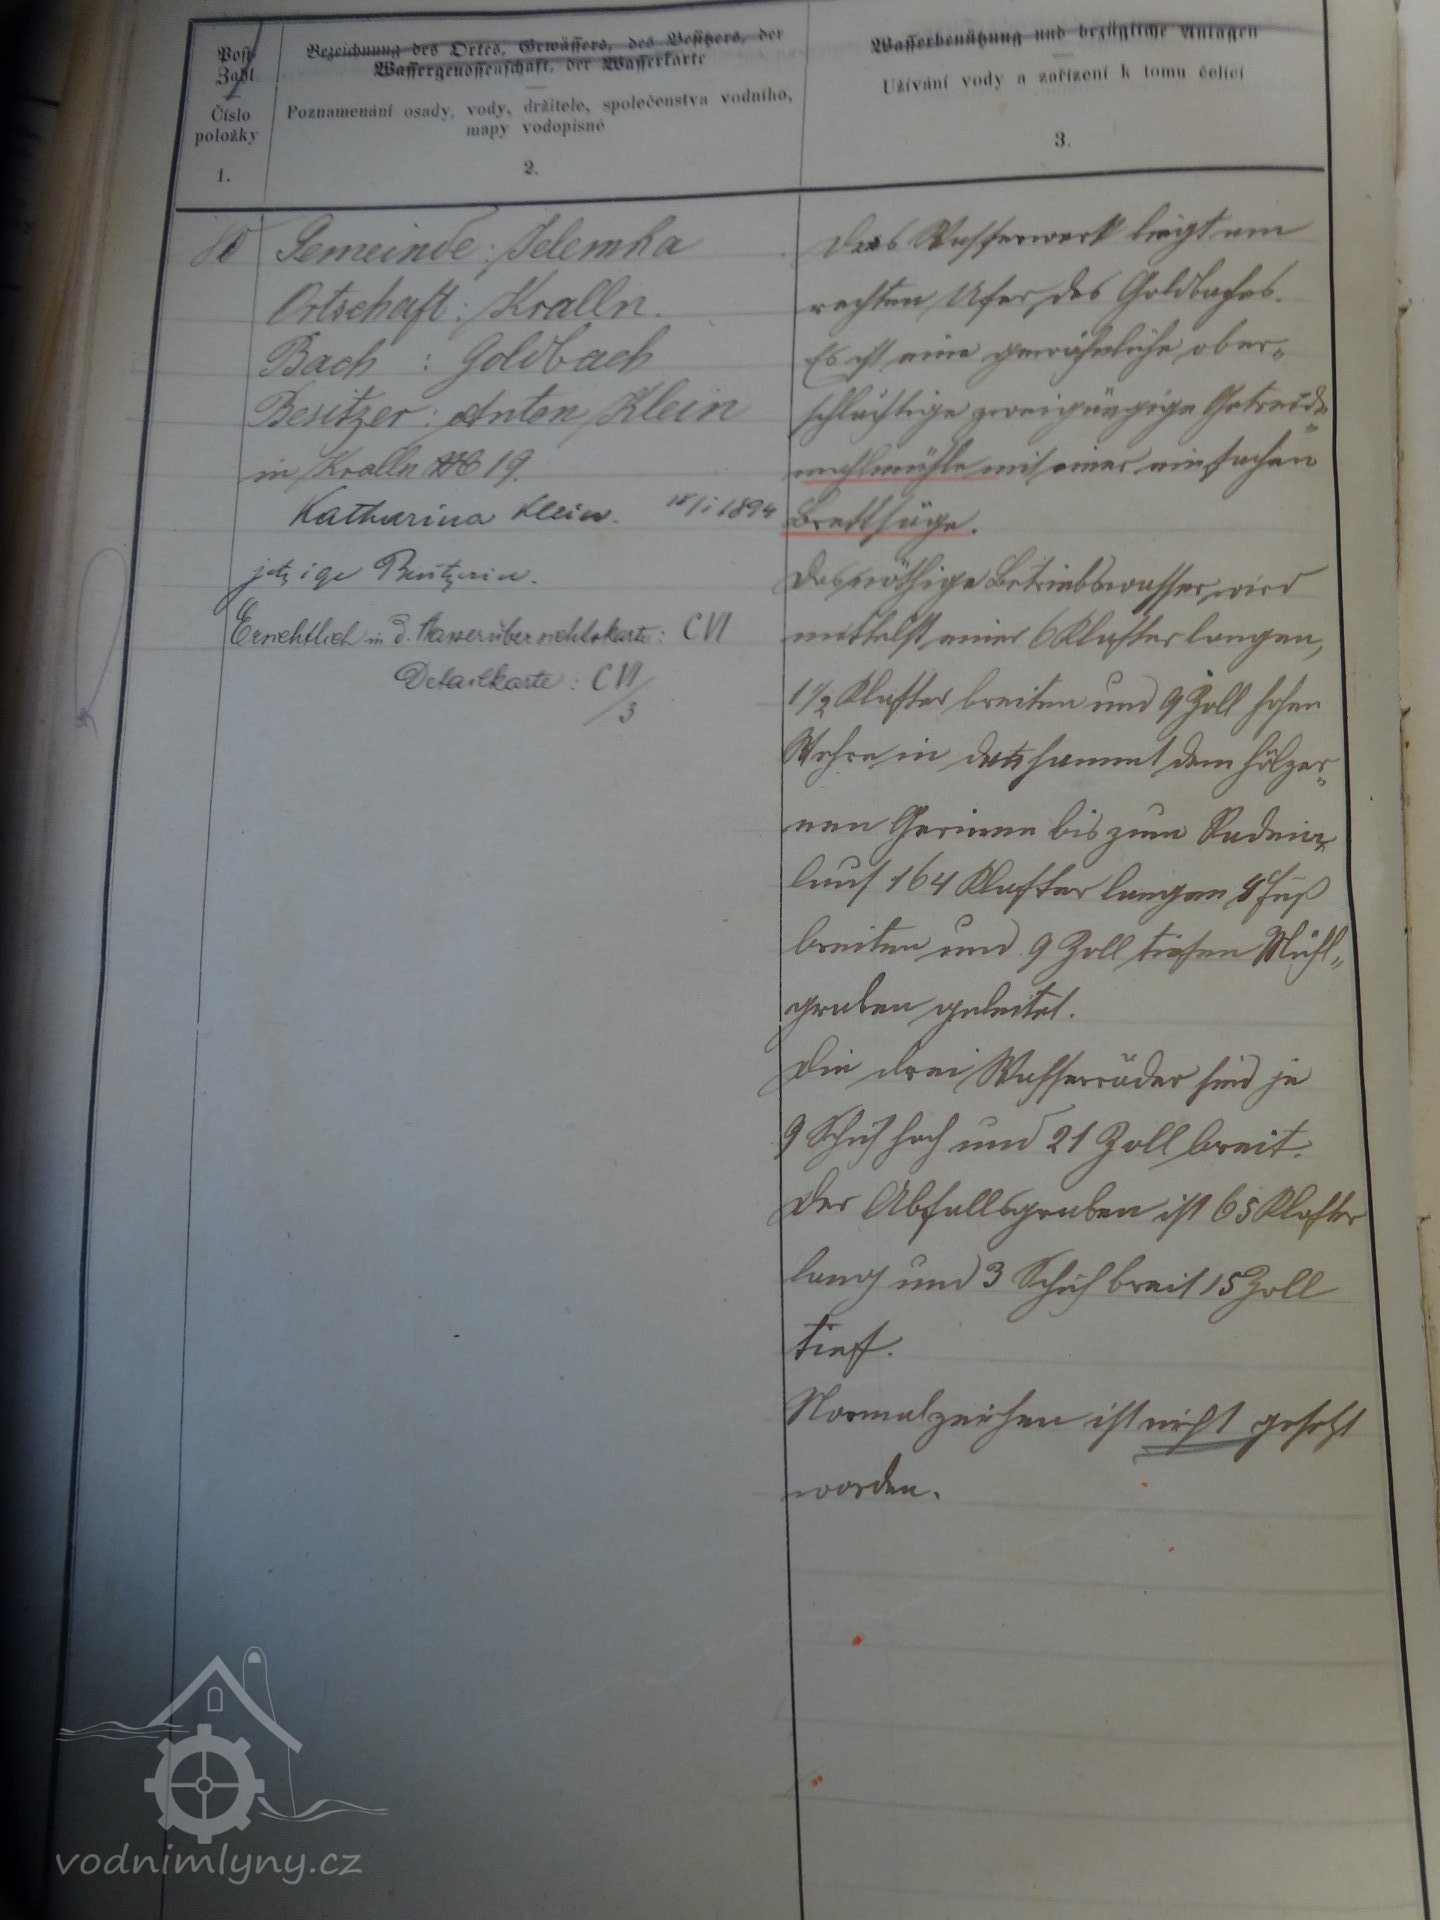 Post-
Zahl
Číslo
položky
1.
Bezeichnung des Ortes, Gewässers, des Besitzers, der
Wassergenossenschaft, der Wasserkarte
Poznamenání osady, vody, držitele, společenstva vodního,
mapy vodopisné
2.
Wasserbenützung und bezügliche Anlagen
Užívání vody a zařízení k tomu čelící
3.
Gemeinde: Jelemka
Ortschaft: Kralln.
Bach : Goldbach
Besitzer: Anton Klein
in Kralln No 19.
Katharina Klein. 18/1 1894
jetzige Besitzerin.
Ersichtlich in d. Wasserübersichtskarte: CVI
Detailkarte: CVI/3
Das Wasserwerk liegt am
rechten Ufer des Goldbaches.
Es ist eine gewöhnliche ober-
schlächtige zweigängige Getreide-
mahlmühle mit einer einfachen
Brettsäge.
Das nöthige Betriebswasser wird
mittelst einer 6 Klafter langen,
1 1/2 Klafter breiten und 9 Zoll hohen
Wehre in den sammt dem hölzer-
nen Gerinne bis zum Radein-
lauf 164 Klafter langen 4 Fuß
breiten und 9 Zoll tiefen Mühl-
graben geleitet.
Die drei Wasserräder sind je
9 Schuh hoch und 21 Zoll breit.
Der Abfallsgraben ist 65 Klafter
lang und 3 Schuh breit 15 Zoll
tief.
Normalzeichen ist nicht gesetzt
worden.
vodnimlyny.cz